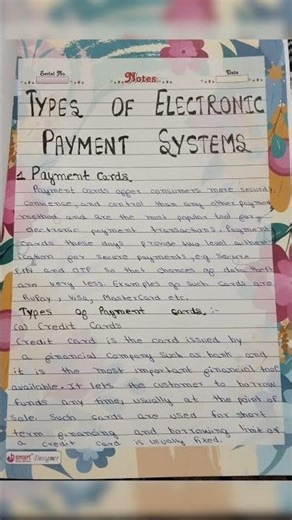 Serial No.
Notes
Date
TYPES OF ELECTRONIC
PAYMENT SYSTEMS
1 Payment Cards
Payment cards offer consumers more security,
convience, and control than any other payment
method and are the most popular tool for
electronic payment transactions. Payment
cards these days provide two level authent
ication for secure payments, eg Secure
PIN and OTP so that chances of data theft
are very less. Examples of such cards are
RuPay, Visa, MasterCard etc.
Types of Payment cards :-
(a) Credit Cards
Credit card is the card issued by
a financial company such as bank and
it is the most important financial tool
available. It lets the customer to borrow
funds any time, usually at the point of
sale. Such cards are used for short
term financing and borrowing limit of
a credit card is usually fixed.